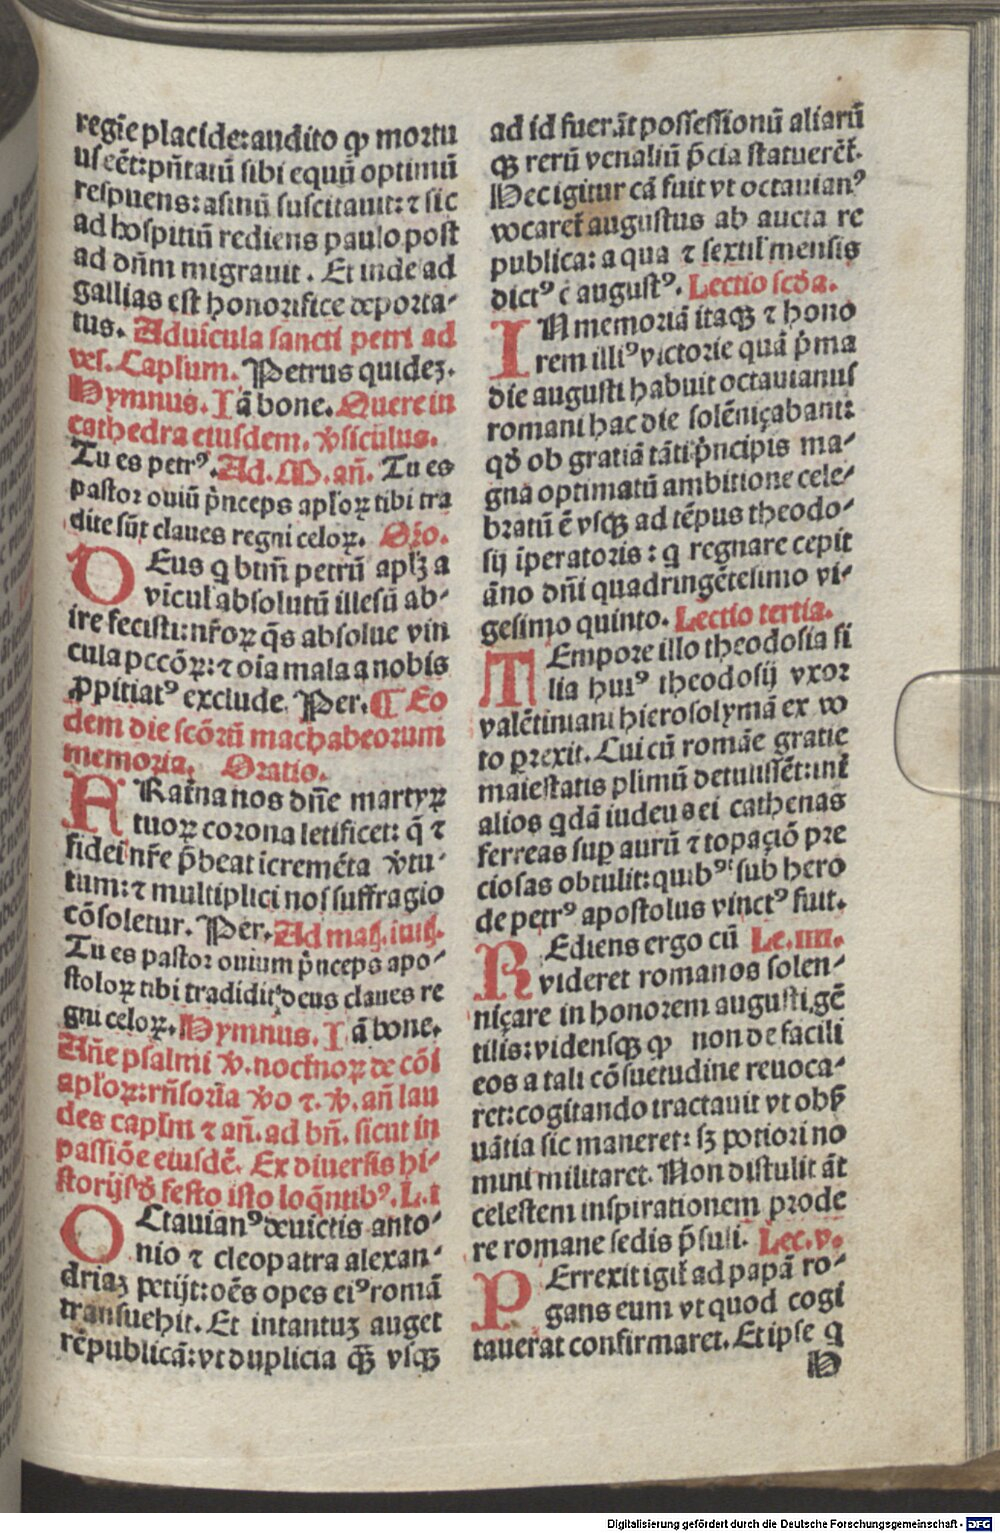 regīe placide: audito ꝙ mortu
us eēt: pñtatū sibi equū optimū
respuens: asinū suscitauit: ⁊ sic
ad hospitiū rediens paulo post
ad dñm migrauit. Et inde ad
gallias est honorifice deporta-
tus. Ad uīcula sancti petri ad
ves. Capľum. Petrus quidez.
Hymnus. Iā bone. Quere in
cathedra eiusdem. v̄siculus.
Tu es petrꝰ. Ad. M. añ. Tu es
pastor ouiū p̄nceps apľoꝝ tibi tra
dite sūt claues regni celoꝝ. Oŕo.
DEus q btm̄ petrū apľz a
vīcul absolutū illesū ab-
ire fecisti: nr̄oꝝ q̄s absolue vin
cula pccōꝝ: ⁊ oīa mala a nobis
ꝓpitiatꝰ exclude. Per. ¶ Eo
dem die scōrū machabeorum
memoria. Oratio.
FRatn̄a nos dn̄e martyꝝ
tuoꝝ corona letificet: q̄ ⁊
fidei nr̄e p̄beat icremēta v̄tu-
tum: ⁊ multiplici nos suffragio
cōsoletur. Per. Ad mag. iuig.
Tu es pastor ouium p̄nceps apo-
stoloꝝ tibi tradidit deus claues re
gni celoꝝ. Hymnus. Iā bone.
Añe psalmi v̄. nocťnoꝝ de cōi
apľoꝝ: rn̄soria v̄o ⁊. v̄. añ lau
des capľm ⁊ añ. ad bñ. sicut in
passiōe eiusdē. Ex diuersis hi-
storijs đ festo isto loq̄ntibꝰ. L. i
OCtauianꝰ deuictis anto-
nio ⁊ cleopatra alexan-
driaz petijt: oēs opes eiꝰ romā
transuehit. Et intantuz auget
rēpublicā: vt duplicia q̄ꝫ vsqꝫ
ad id fuerāt possessionū aliarū
qꝫ rerū venaliū p̄cia statuerēt.
Hec igitur cā fuit vt octauianꝰ
vocaret̄ augustus ab aucta re
publica: a qua ⁊ sextil mensis
dictꝰ ē augustꝰ. Lectio scđa.
IN memoriā itaqꝫ ⁊ hono
rem illiꝰ victorie quā p̄ma
die augusti habuit octauianus
romani hac die solēniçabant:
qđ ob gratiā tāti p̄ncipis ma-
gna optimatū ambitione cele-
bratū ē vsqꝫ ad tēpus theodo-
sij īperatoris: q regnare cepit
āno dñi quadringētesimo vi-
gesimo quinto. Lectio tertia.
TEmpore illo theodosia fi
lia huiꝰ theodosij vxor
valētiniani hierosolymā ex vo
to ꝑrexit. Cui cū romāe gratie
maiestatis plimū detulissēt: int̄
alios qdā iudeus ei cathenas
ferreas suꝑ aurū ⁊ topaçiō pre
ciosas obtulit: quibꝰ sub hero
de petrꝰ apostolus vinctꝰ fuit.
REdiens ergo cū Le. iiii.
videret romanos solen-
niçare in honorem augusti, gē
tilis: vidensqꝫ ꝙ non de facili
eos a tali cōsuetudine reuoca-
ret: cogitando tractauit vt obẜ
uātia sic maneret: sꝫ potiori no
mini militaret. Non distulit āt
celestem inspirationem prode
re romane sedis p̄suli. Lec. v.
PErrexit igit̄ ad papā ro-
gans eum vt quod cogi
tauerat confirmaret. Et ipse q
H
Digitalisierung gefördert durch die Deutsche Forschungsgemeinschaft - DFG